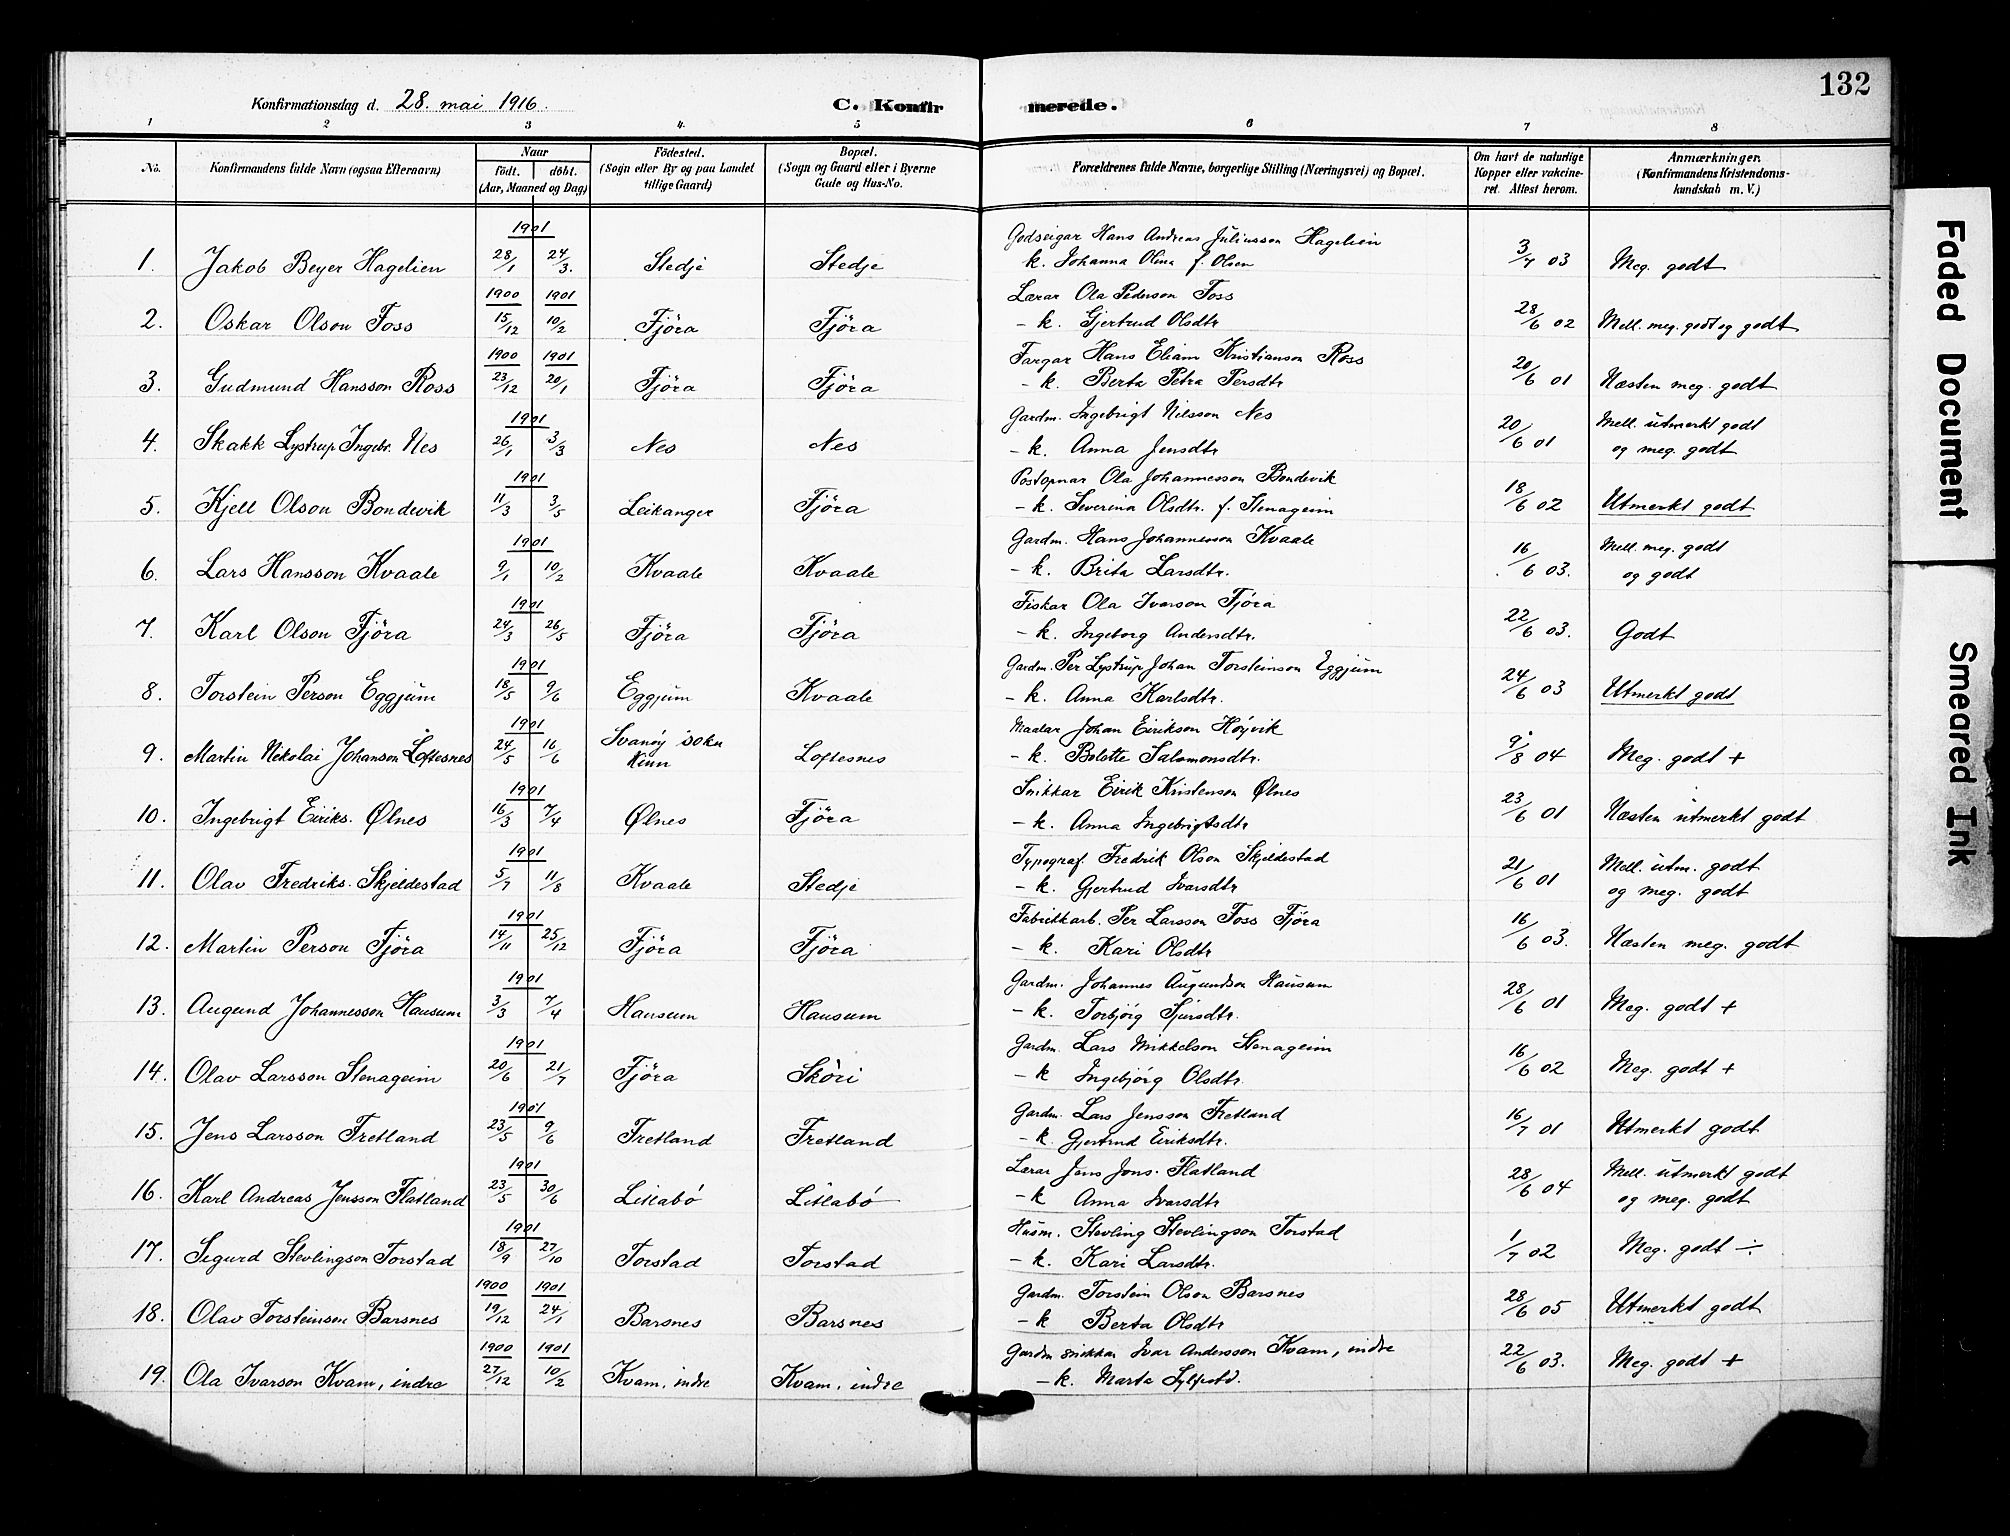 132
Konfirmationsdag d. 28. mai 1916.
C. Konfirmerede.
1 2 3 4. 5 6 7 8
No. Konfirmandens fulde Navn (ogsaa Efternavn) Naar födt. döbt. (Aar, Maaned og Dag) Födested. (Sogn eller By og paa Landet tillige Gaard) Bopæl. (Sogn og Gaard eller i Byerne Gade og Hus-No. Forældrenes fulde Navne, borgerlige Stilling (Næringsvei) og Bopæl. Om havt de naturlige Kopper eller vakcineret. Attest herom. Anmærkninger. (Konfirmandens Kristendomskundskab m. V.)
1901 Godseigar Hans Andreas Juliusson Hagelien
1. Jakob Beyer Hagelien 28/1 24/3. Stedje Stedje k. Johanna Olina f. Olsen 3/7 03 Meg. godt
1900 1901 Lærar Ola Pederson Foss
2. Oskar Olson Foss 15/12 10/2 Fjöra Fjöra - k. Gjertrud Olsdtr 28/6 02 Mell. meg. godt og godt
1900 1901 Fargar Hans Eliam Kristianson Ross
3. Gudmund Hansson Ross 23/12 20/1 Fjöra Fjöra - k. Berta Petra Persdtr 20/6 01 Næsten meg. godt
1901 Gardm. Ingebrigt Nilsson Nes Mell. utmerkt godt
4. Skakk Lystrup Ingebr. Nes 26/1 3/3 Nes Nes - k. Anna Jensdtr 20/6 01 og meg. godt
1901 Postopnar Ola Johannesson Bondevik
5. Kjell Olson Bondevik 11/3 3/5 Leikanger Fjöra - k. Severina Olsdtr. f. Stenageim 18/6 02 Utmerkt godt
1901 Gardm. Hans Johannesson Kvaale Mell. meg. godt
6. Lars Hansson Kvaale 9/1 10/2 Kvaale Kvaale - k. Brita Larsdtr. 16/6 03. og godt
1901 Fiskar Ola Ivarson Fjöra
7. Karl Olson Fjöra 24/3 26/5 Fjöra Fjöra - k. Ingeborg Andersdtr. 22/6 03. Godt
1901 Gardm. Per Lystrup Johan Torsteinson Eggjum
8. Torstein Person Eggjum 18/5 9/6 Eggjum Kvaale - k. Anna Karlsdtr. 24/6 03 Utmerkt godt
1901 Svanöy sokn Maalar Johan Eirikson Höyvik
9. Martin Nikolai Johanson Loftesnes 24/5 16/6 Kinn Loftesnes - k. Bolette Salomonsdtr. 9/8 04 Meg. godt +
1901 Snikkar Eirik Kristenson Ølnes
10. Ingebrigt Eiriks. Ølnes 16/3 7/4 Ølnes Fjöra - k. Anna Ingebrigtsdtr 23/6 01 Næsten utmerkt godt
1901 Typograf Fredrik Olson Skjeldestad Mell. utm. godt
11. Olav Fredriks. Skjeldestad 5/7 11/8 Kvaale Stedje - k. Gjertrud Ivarsdtr 21/6 01 og meg. godt
1901 Fabrikkarb. Per Larsson Foss Fjöra
12. Martin Person Fjöra 14/11 25/12 Fjöra Fjöra - k. Kari Olsdtr 16/6 03. Næsten meg. godt
1901 Gardm. Johannes Augundson Hausum
13. Augund Johannesson Hausum 3/3 7/4 Hausum Hausum - k. Torbjörg Sjursdtr. 28/6 01 Meg. godt +
1901 Gardm. Lars Mikkelson Stenageim
14. Olav Larsson Stenageim 20/6 21/7 Fjöra Sköri - k Ingebjörg Olsdtr. 16/6 02 Meg. godt +
1901 Gardm. Lars Jensson Fretland
15. Jens Larsson Fretland 23/5 9/6 Fretland Fretland - k. Gjertrud Eiriksdtr. 16/7 01 Utmerkt godt
1901 Lærar Jens Jons. Flatland Mell. utmerkt godt
16. Karl Andreas Jensson Flatland 23/5 30/6 Litlabö Litlabö - k Anna Ivarsdtr 28/6 04 og meg. godt
1901 Husm. Stevling Stevlingson Torstad
17. Sigurd Stevlingson Torstad 18/9 27/10 Torstad Torstad - k. Kari Larsdtr. 1/7 02 Meg. godt ÷
1900 1901 Gardm. Torstein Olson Barsnes
18. Olav Torsteinson Barsnes 19/12 24/1 Barsnes Barsnes - k Berta Olsdtr 28/6 05 Utmerkt godt
1900 1901 Gardm snikkar Ivar Andersson Kvam, indre
19. Ola Ivarson Kvam, indre 27/12 10/2 Kvam, indre Kvam, indre - k. Marta 22/6 03. Meg. godt +
Faded Document
Smeared Ink